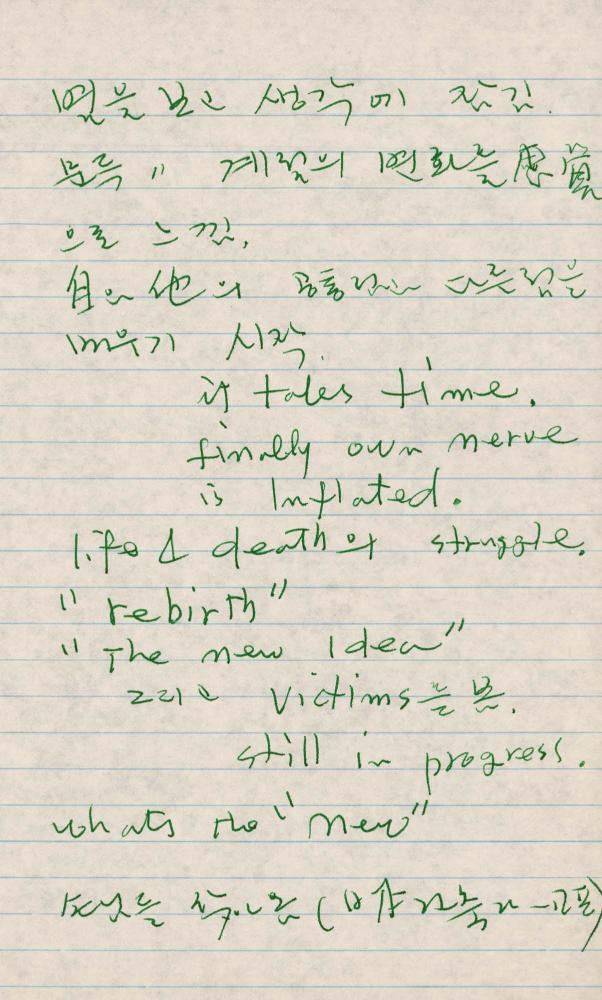 별을 보고 생각에 잠김.
문득 " 계절의 변화를 感覚
으로 느낌.
自와 他의 공통점과 다른점을
배우기 시작.
it takes time.
finally own nerve
is Inflated.
life & death의 struggle.
"rebirth"
"The new Idea"
그리고 Victims를 봄.
still in progress.
whats the "new"